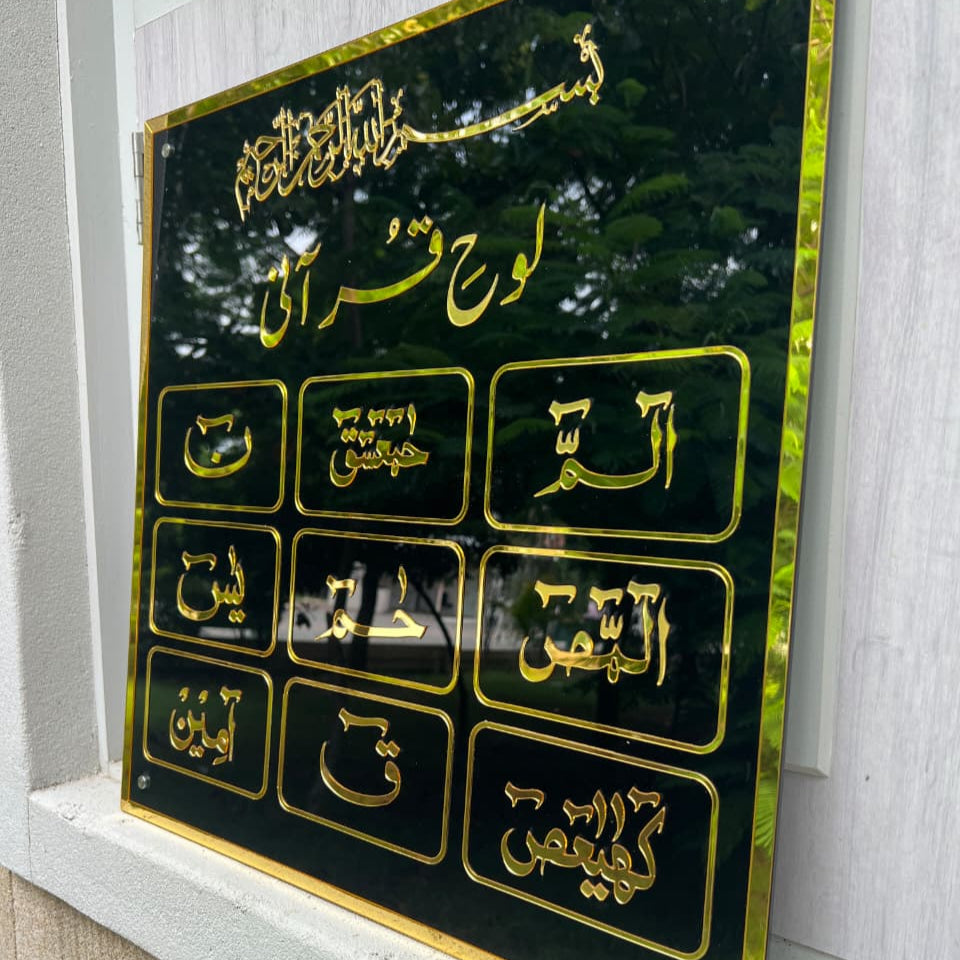 بِسْمِ اللهِ الرَّحْمٰنِ الرَّحِيْمِ
لوحِ قُرآنی
الٓمّٓ حٰمٓعٓسٓقٓ نٓ
الٓمّٓصٓ حٰمٓ یٰسٓ
كٓهٰيٰعٓصٓ قٓ اٰمِيْنْ